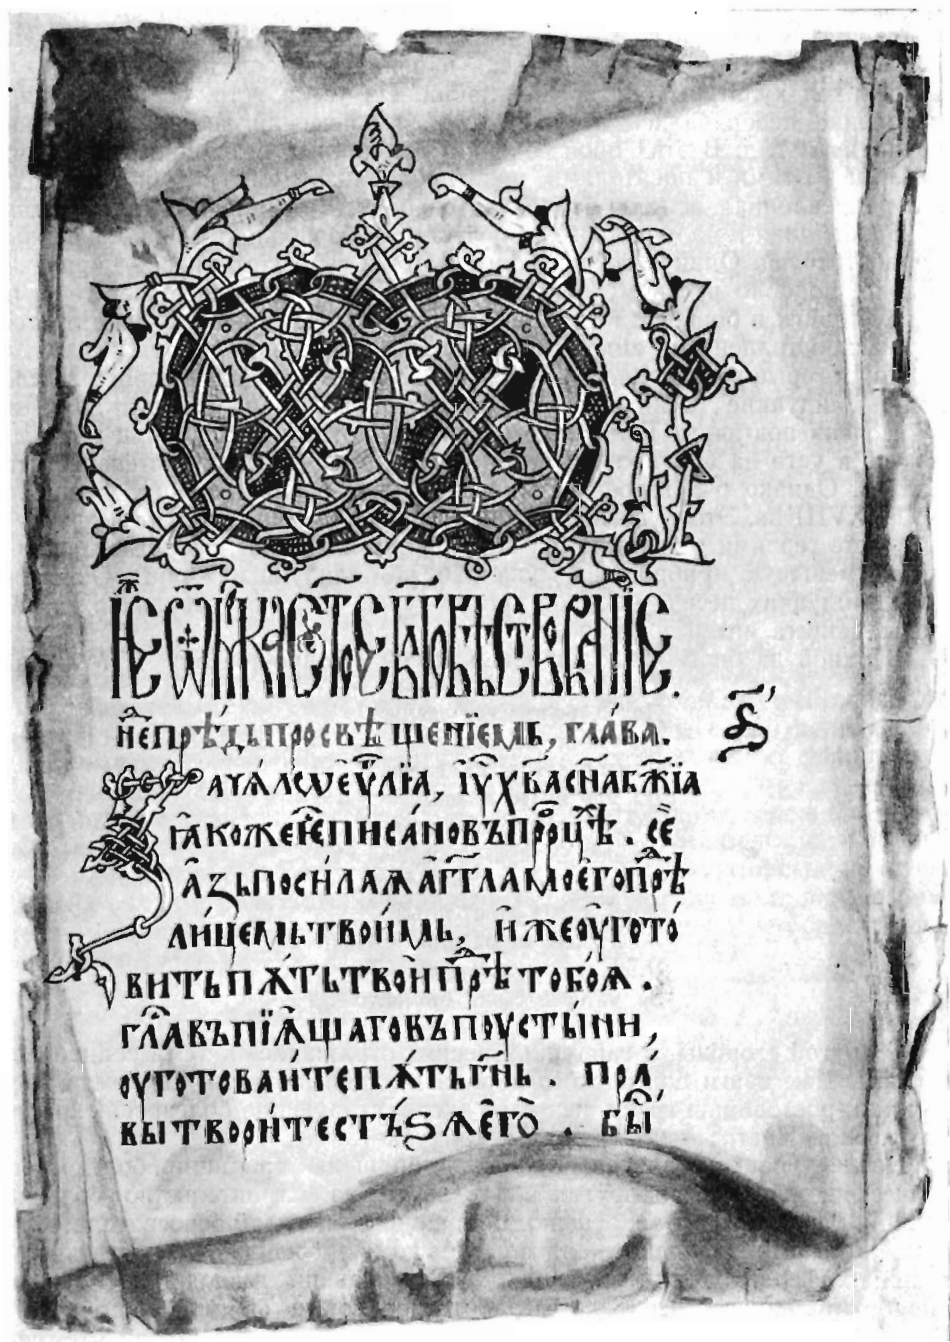 ЇЖЕ Ѿ МАРКА СТ҃ОЕ БЛ҃ГОВѢСТВОВАНЇЕ.
не прѣ́дьпросвѣщенїемь, глава.
Зачѧлѡ еѵⷢ҇лїа, іу҃ х҃ва сн҃а бж҃їа
ꙗкоже е҆ писа́но въ прⷪ҇рцѣⷯ. се҆
а҆зь посы́лаѫ а҆гг҃ла моего̀ прѣⷣ
ли́цемь твои́мь, и҆же оу҆гото́
вить пѫ́ть твои прѣⷣ тобо́ѫ.
глⷭ҇а въпїѫ́щаго въ поусты́ни,
оуготова́ите пѫ́ть гн҃ь. пра
вы твори́те стьѕѧ его̀. бы́